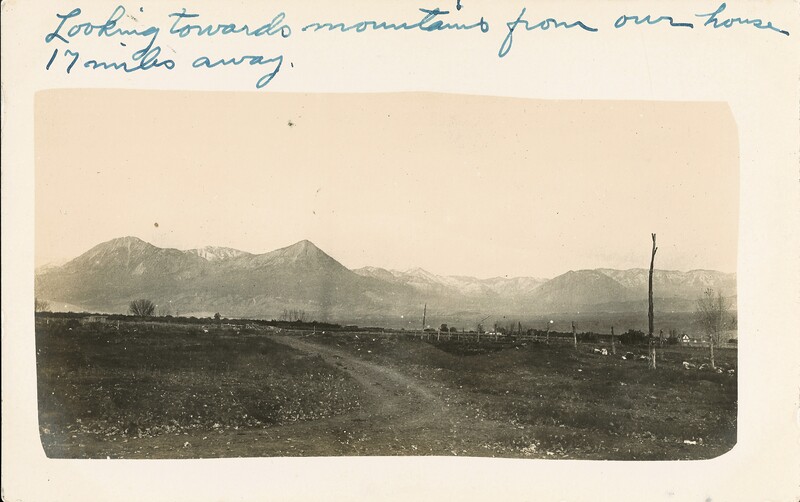 Looking towards mountains from our house
17 miles away.